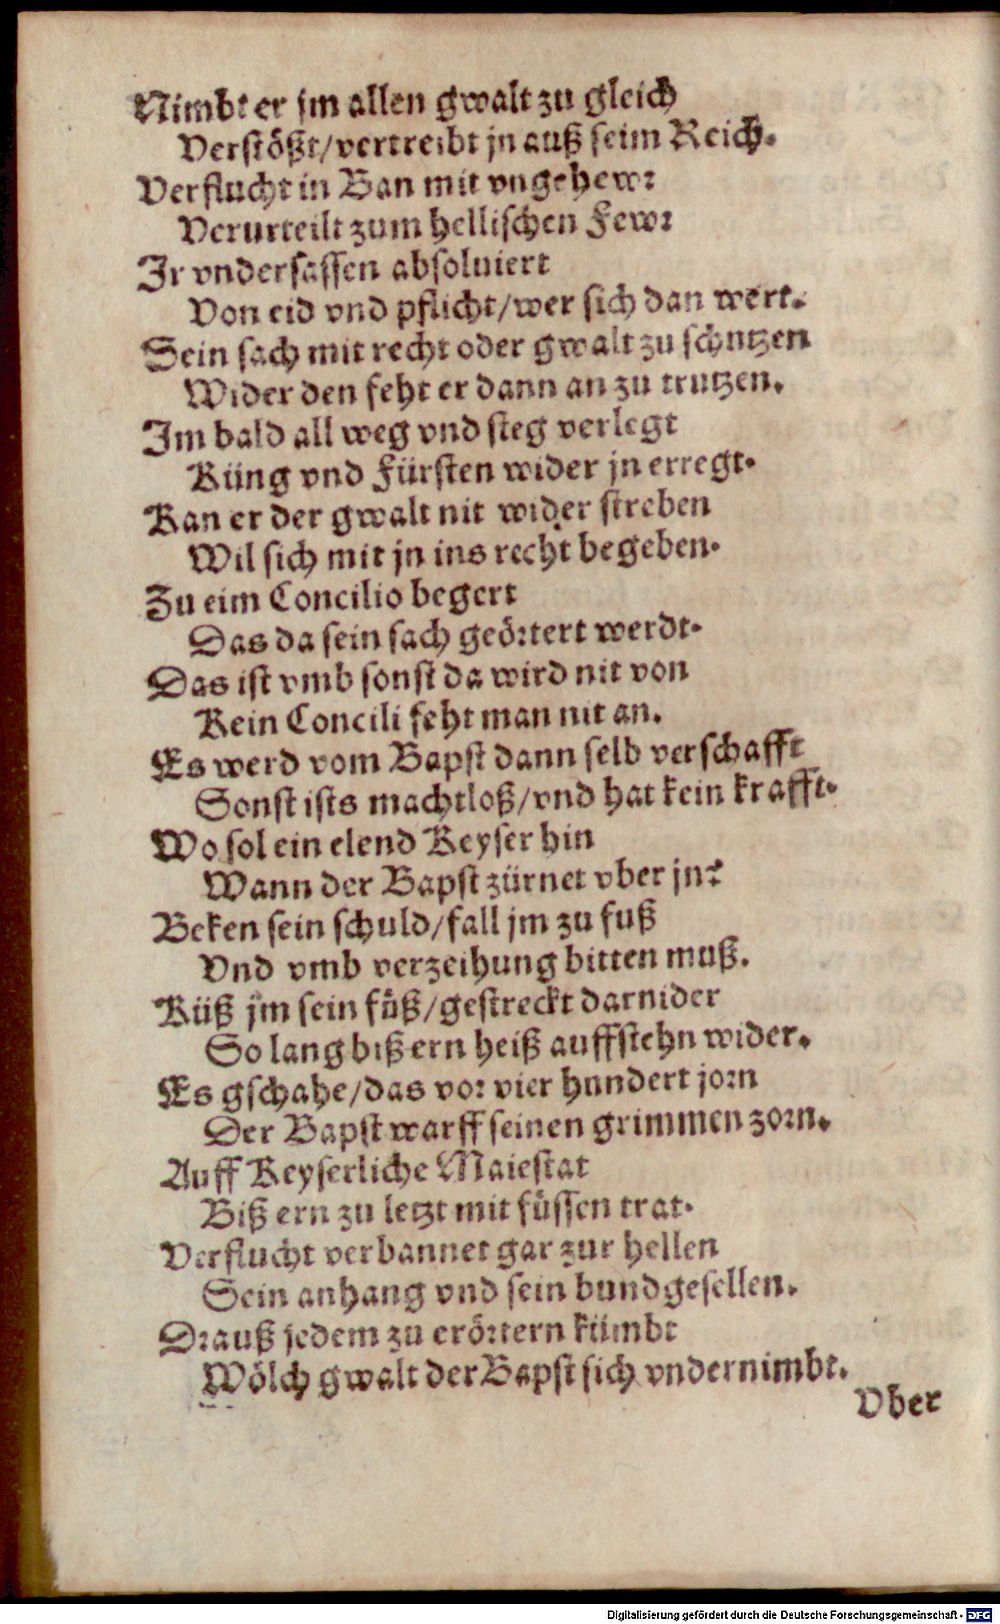 Nimbt er jm allen gwalt zu gleich
Verstößt/vertreibt jn auß seim Reich.
Verflucht in Ban mit vngehewr
Verurteilt zum hellischen Fewr
Jr vndersassen absoluiert
Von eid vnd pflicht/wer sich dan wert.
Sein sach mit recht oder gwalt zu schutzen
Wider den feht er dann an zu trutzen.
Jm bald all weg vnd steg verlegt
Küng vnd Fürsten wider jn erregt.
Kan er der gwalt nit wider streben
Wil sich mit jn ins recht begeben.
Zu eim Concilio begert
Das da sein sach geörtert werdt.
Das ist vmb sonst da wird nit von
Kein Concili feht man nit an.
Es werd vom Bapst dann selb verschafft
Sonst ists machtloß/vnd hat kein krafft.
Wo sol ein elend Keyser hin
Wann der Bapst zürnet vber jn?
Beken sein schuld/fall jm zu fuß
Vnd vmb verzeihung bitten muß.
Küß jm sein füß/gestreckt darnider
So lang biß ern heiß auffstehn wider.
Es gschahe/das vor vier hundert jorn
Der Bapst warff seinen grimmen zorn.
Auff Keyserliche Maiestat
Biß ern zu letzt mit füssen trat.
Verflucht verbannet gar zur hellen
Sein anhang vnd sein bundgesellen.
Drauß jedem zu erörtern kümbt
Wölch gwalt der Bapst sich vndernimbt.
Vber
Digitalisierung gefördert durch die Deutsche Forschungsgemeinschaft - DFG